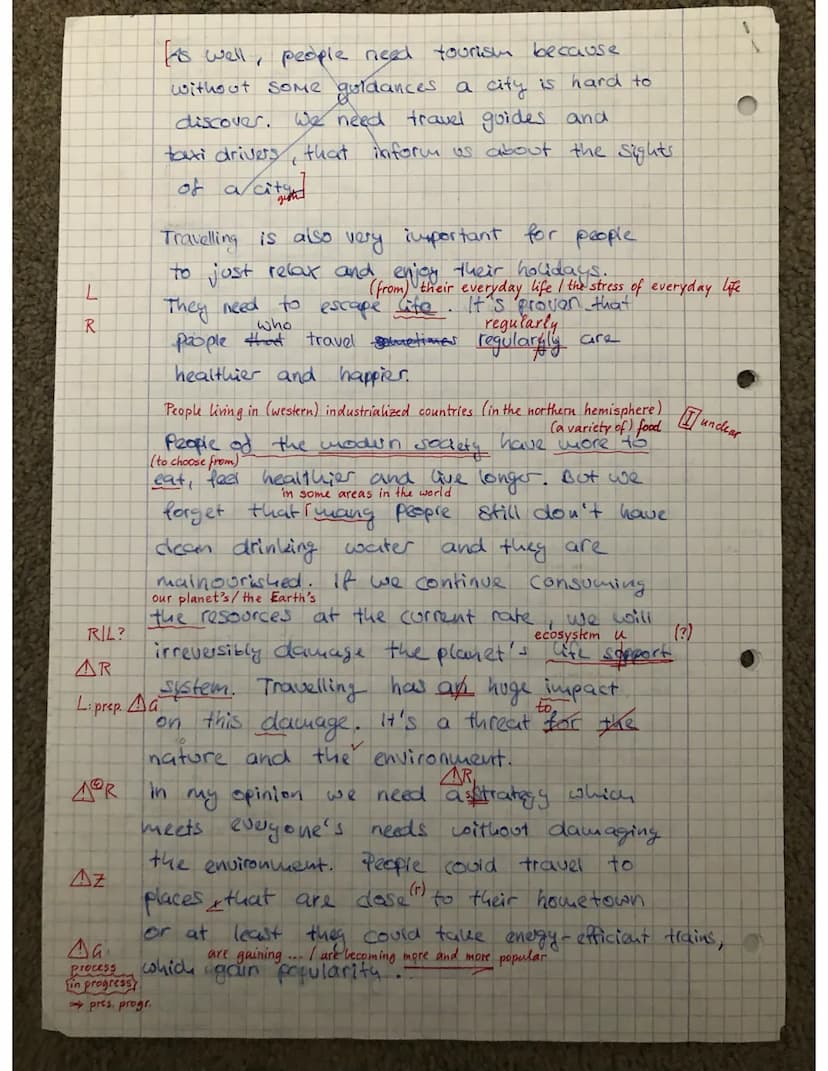 [As well, people need tourism because
without some guidances a city is hard to
discover. We need travel guides and
taxi drivers, that inform us about the sights
of a city]
Travelling is also very important for people
to just relax and enjoy their holidays.
(from) their everyday life / the stress of everyday life
L They need to escape life. It's proven that
who regularly
R people that travel sometimes regularly are
healthier and happier.
People living in (western) industrialized countries (in the northern hemisphere)
(a variety of) food I unclear
People of the modern society have more to
(to choose from)
eat, feel healthier and live longer. But we
in some areas in the world
forget that many people still don't have
clean drinking water and they are
malnourished. If we continue consuming
our planet's / the Earth's
the resources at the current rate, we will
R/L? ecosystem u (?)
irreversibly damage the planet's life support
R system. Travelling has an huge impact
L: prep. G to
on this damage. It's a threat for the
nature and the environment.
R
R In my opinion we need a strategy which
meets everyone's needs without damaging
the environment. People could travel to
Z places, that are close(r) to their hometown
or at least they could take energy-efficient trains,
G are gaining ... / are becoming more and more popular
process which gain popularity.
in progress
→ pres. progr.